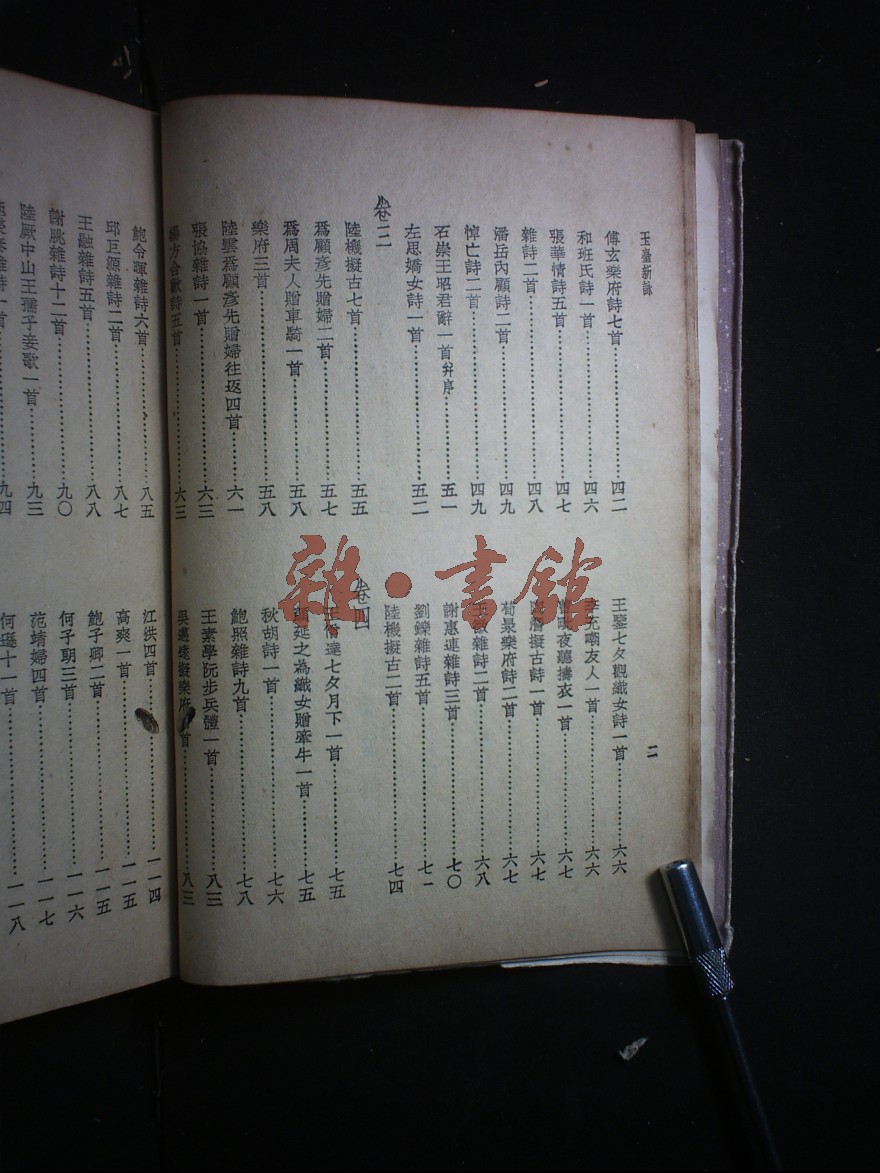 玉臺新詠
二
傅玄樂府詩七首……四二
和班氏詩一首……四六
張華情詩五首……四七
雜詩二首……四八
潘岳內顧詩二首……四九
悼亡詩二首……四九
石崇王昭君辭一首幷序……五一
左思嬌女詩一首……五二
卷三
陸機擬古七首……五五
爲顧彥先贈婦二首……五七
爲周夫人贈車騎一首……五八
樂府三首……五八
陸雲爲顧彥先贈婦往返四首……六一
張協雜詩一首……六三
楊方合歡詩五首……六三
王鑒七夕觀織女詩一首……六六
李充嘲友人一首……六六
夜聽擣衣一首……六七
擬古詩一首……六七
荀㫤樂府詩二首……六七
雜詩二首……六八
謝惠連雜詩三首……七〇
劉鑠雜詩五首……七一
陸機擬古二首……七四
卷四
王僧達七夕月下一首……七五
顏延之為織女贈牽牛一首……七五
秋胡詩一首……七六
鮑照雜詩九首……七八
王素學阮步兵體一首……八三
吳邁遠擬樂府首……八三
鮑令暉雜詩六首……八五
邱巨源雜詩二首……八七
王融雜詩五首……八八
謝朓雜詩十二首……九〇
陸厥中山王孺子妾歌一首……九三
雜詩一首……九四
江洪四首……一一四
高爽一首……一一五
鮑子卿二首……一一五
何子朗三首……一一六
范靖婦四首……一一七
何遜十一首……一一八
雜·書館